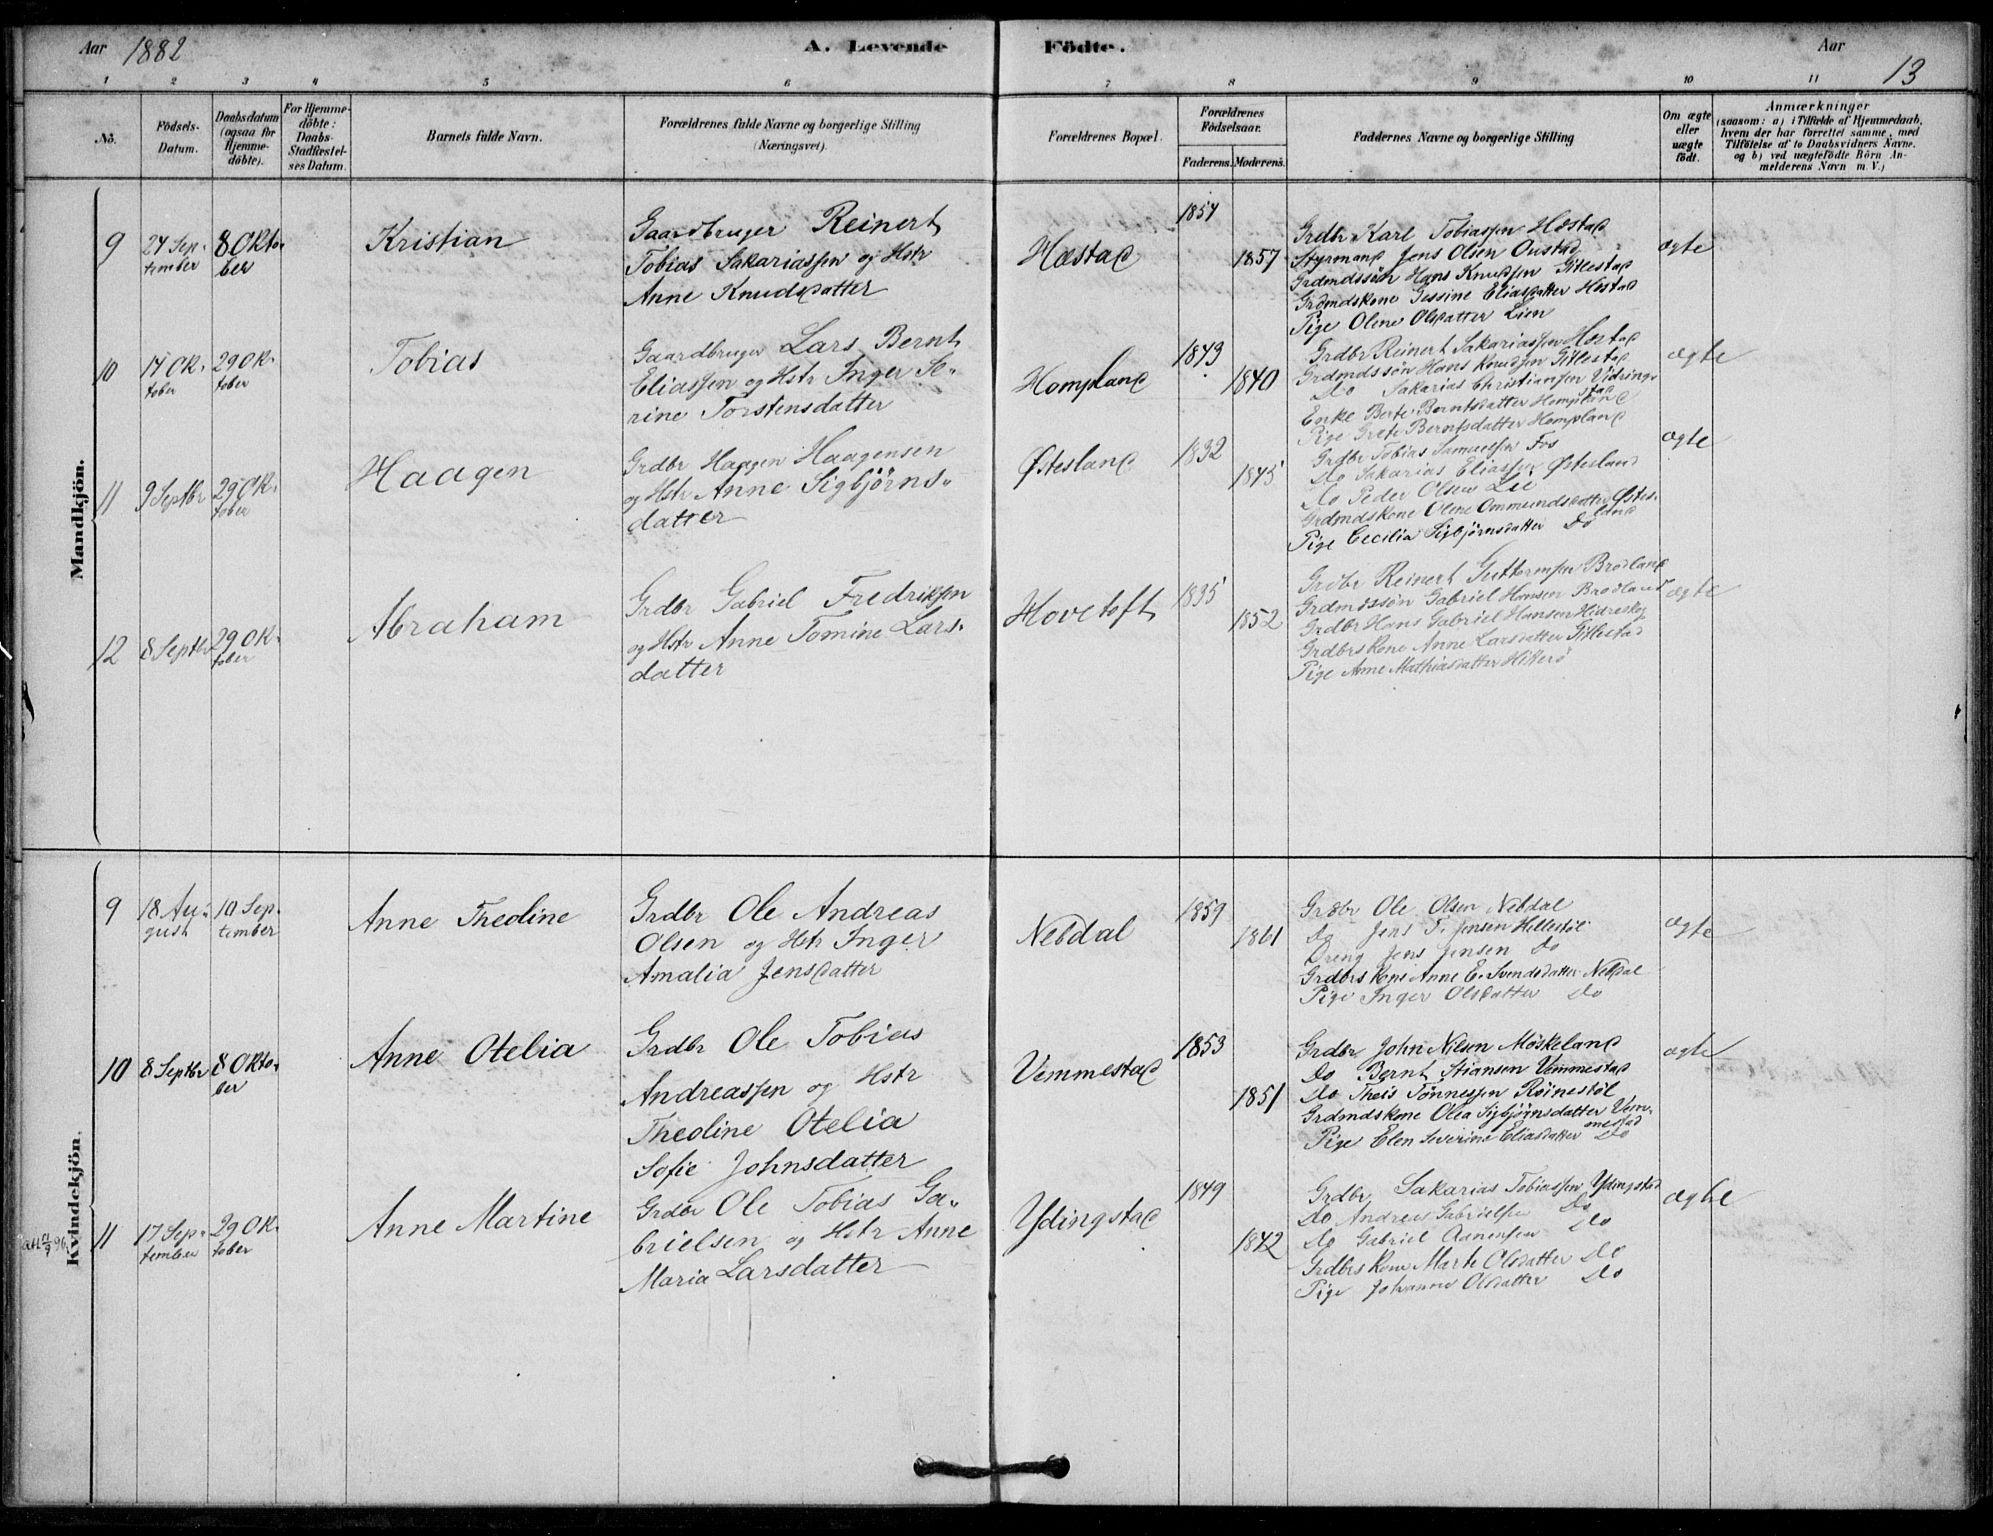 Aar 1882
A. Levende Födte.
Aar
13
1 2 3 4 5 6 7 8 9 10 11
No.
Födsels-
Datum.
Daabsdatum
(ogsaa for
Hjemme-
döbte).
For Hjemme-
döbte:
Daabs-
Stadfæstel-
ses Datum.
Barnets fulde Navn.
Forældrenes fulde Navne og borgerlige Stilling
(Næringsvei).
Forældrenes Bopæl.
Forældrenes
Födselsaar.
Faderens. Moderens.
Faddernes Navne og borgerlige Stilling
Om ægte
eller
uægte
födt.
Anmærkninger
(saasom: a) i Tilfælde af Hjemmedaab,
hvem der har forrettet samme, med
Tilföielse af to Daabsvidners Navne,
og b) ved uægtefödte Börn An-
melderens Navn m. V.)
Mandkjön.
9
24 Sep-
tember
8 Okto-
ber
Kristian
Gaardbruger Reinert
Tobias Sakariassen og Hstr
Anne Knudsdatter
Hæstad
1857
Grdbr Karl Tobiassen Hæstad
Styrmand Jens Olsen Oustad
Grdmdssön Hans Knudsen Gitlestad
Grdmdskone Gessine Eliasdatter Hæstad
Pige Olene Olsdatter Lien
ægte
10
14 Ok-
tober
29 Ok-
tober
Tobias
Gaardbruger Lars Bernt
Eliassen og Hstr Inger Se-
rine Torstensdatter
Hompland
1843
1840
Grdbr Reinert Sakariassen Hæstad
Grdmdssön Hans Knudsen Gitlestad
Do Sakarias Christiansen Vidrings-
stad
Enke Berte Berntsdatter Hompland
Pige Grete Berntsdatter Hompland
ægte
11
9 Septbr
29 Ok-
tober
Haagen
Grdbr Haagen Haagensen
og Hstr Anne Sigbjørns-
datter
Østesland
1832
1845
Grdbr Tobias Samuelsen Fos
Do Sakarias Eliassen Østesland
Do Peder Olsen Lie
Grdmdskone Olene Ommundsdatter Østes-
land
Pige Cecilia Sigbjörnsdatter Do
ægte
12
8 Septbr
29 Ok-
tober
Abraham
Grdbr Gabriel Fredriksen
og Hstr Anne Tomine Lars-
datter
Hovetoft
1835
1852
Grdbr Reinert Guttormsen Brodland
Grdmdssön Gabriel Hansen Brodland
Grdbr Hans Gabriel Hansen Hidreskog
Grdbrskone Anne Larsdatter Gitlestad
Pige Anne Mathiasdatter Hitterö
ægte
Kvindekjön.
9
18 Au-
gust
10 Sep-
tember
Anne Theoline
Grdbr Ole Andreas
Olsen og Hstr Inger
Amalia Jensdatter
Nebdal
1859
1861
Grdbr Ole Olsen Nebdal
Do Jens T. Jensen Hellestöl
Dreng Jens Jensen Do
Grdbrskone Anne E. Svendsdatter Nebdal
Pige Inger Olsdatter Do
ægte
10
8 Septbr
8 Okto-
ber
Anne Otelia
Grdbr Ole Tobias
Andreassen og Hstr
Theoline Otelia
Sofie Johnsdatter
Vemmestad
1853
1851
Grdbr John Nilsen Möskeland
Do Bernt Stiansen Vemmestad
Do Theis Tönnessen Röinestöl
Grdmdskone Olea Sigbjörnsdatter Vem-
mestad
Pige Elen Severine Eliasdatter Do
ægte
11
17 Sep-
tember
29 Ok-
tober
Anne Martine
Grdbr Ole Tobias Ga-
brielsen og Hstr Anne
Maria Larsdatter
Ydingstad
1849
1842
Grdbr Sakarias Tobiassen Ydingstad
Do Andreas Gabrielsen Do
Do Gabriel Aanensen Do
Grdbrskone Marte Olsdatter Do
Pige Johanne Olsdatter Do
ægte